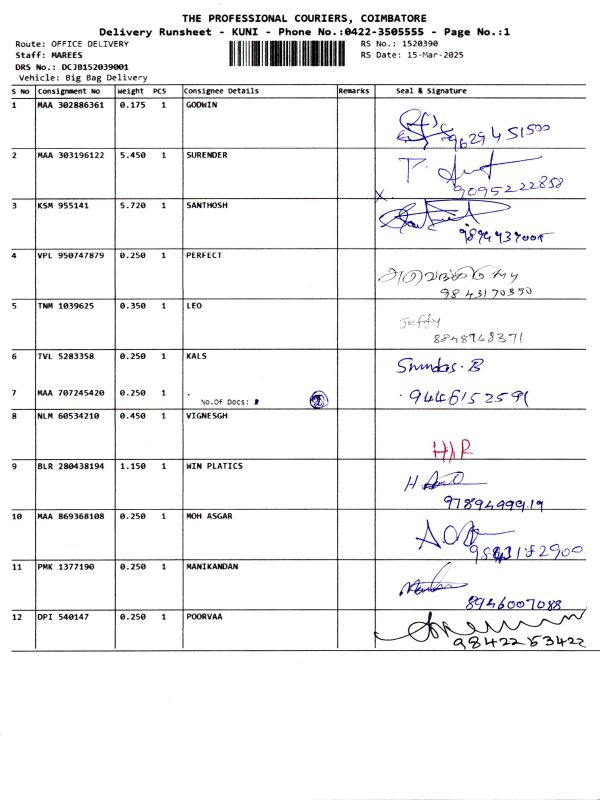 THE PROFESSIONAL COURIERS, COIMBATORE
Delivery Runsheet - KUNI - Phone No.:0422-3505555 - Page No.:1
Route: OFFICE DELIVERY
RS No.: 1520390
Staff: MAREES
RS Date: 15-Mar-2025
DRS No.: DCJB152039001
Vehicle: Big Bag Delivery
S No Consignment No Weight PCS Consignee Details Remarks Seal & Signature
1 MAA 302886361 0.175 1 GODWIN
9629451500
2 MAA 303196122 5.450 1 SURENDER
9095222858
3 KSM 955141 5.720 1 SANTHOSH
4 VPL 950747879 0.250 1 PERFECT
9843170390
5 TNM 1039625 0.350 1 LEO
Jeffy
8848748371
6 TVL 5283358 0.250 1 KALS
7 MAA 707245420 0.250 1 .
No.Of Docs:
9446152591
8 NLM 60534210 0.450 1 VIGNESGH
9 BLR 280438194 1.150 1 WIN PLATICS
9789499919
10 MAA 869368108 0.250 1 MOH ASGAR
11 PMK 1377190 0.250 1 MANIKANDAN
8946007088
12 DPI 540147 0.250 1 POORVAA
9842253422